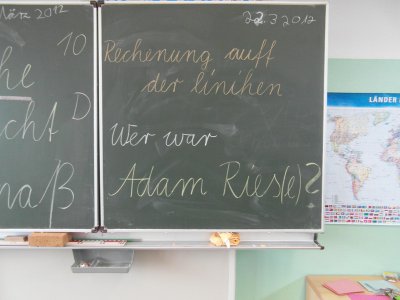 März 2012
10
he
icht D
naß
22.3.2012
Rechenung auff
der linihen
Wer war
Adam Ries(e)?
LÄNDER